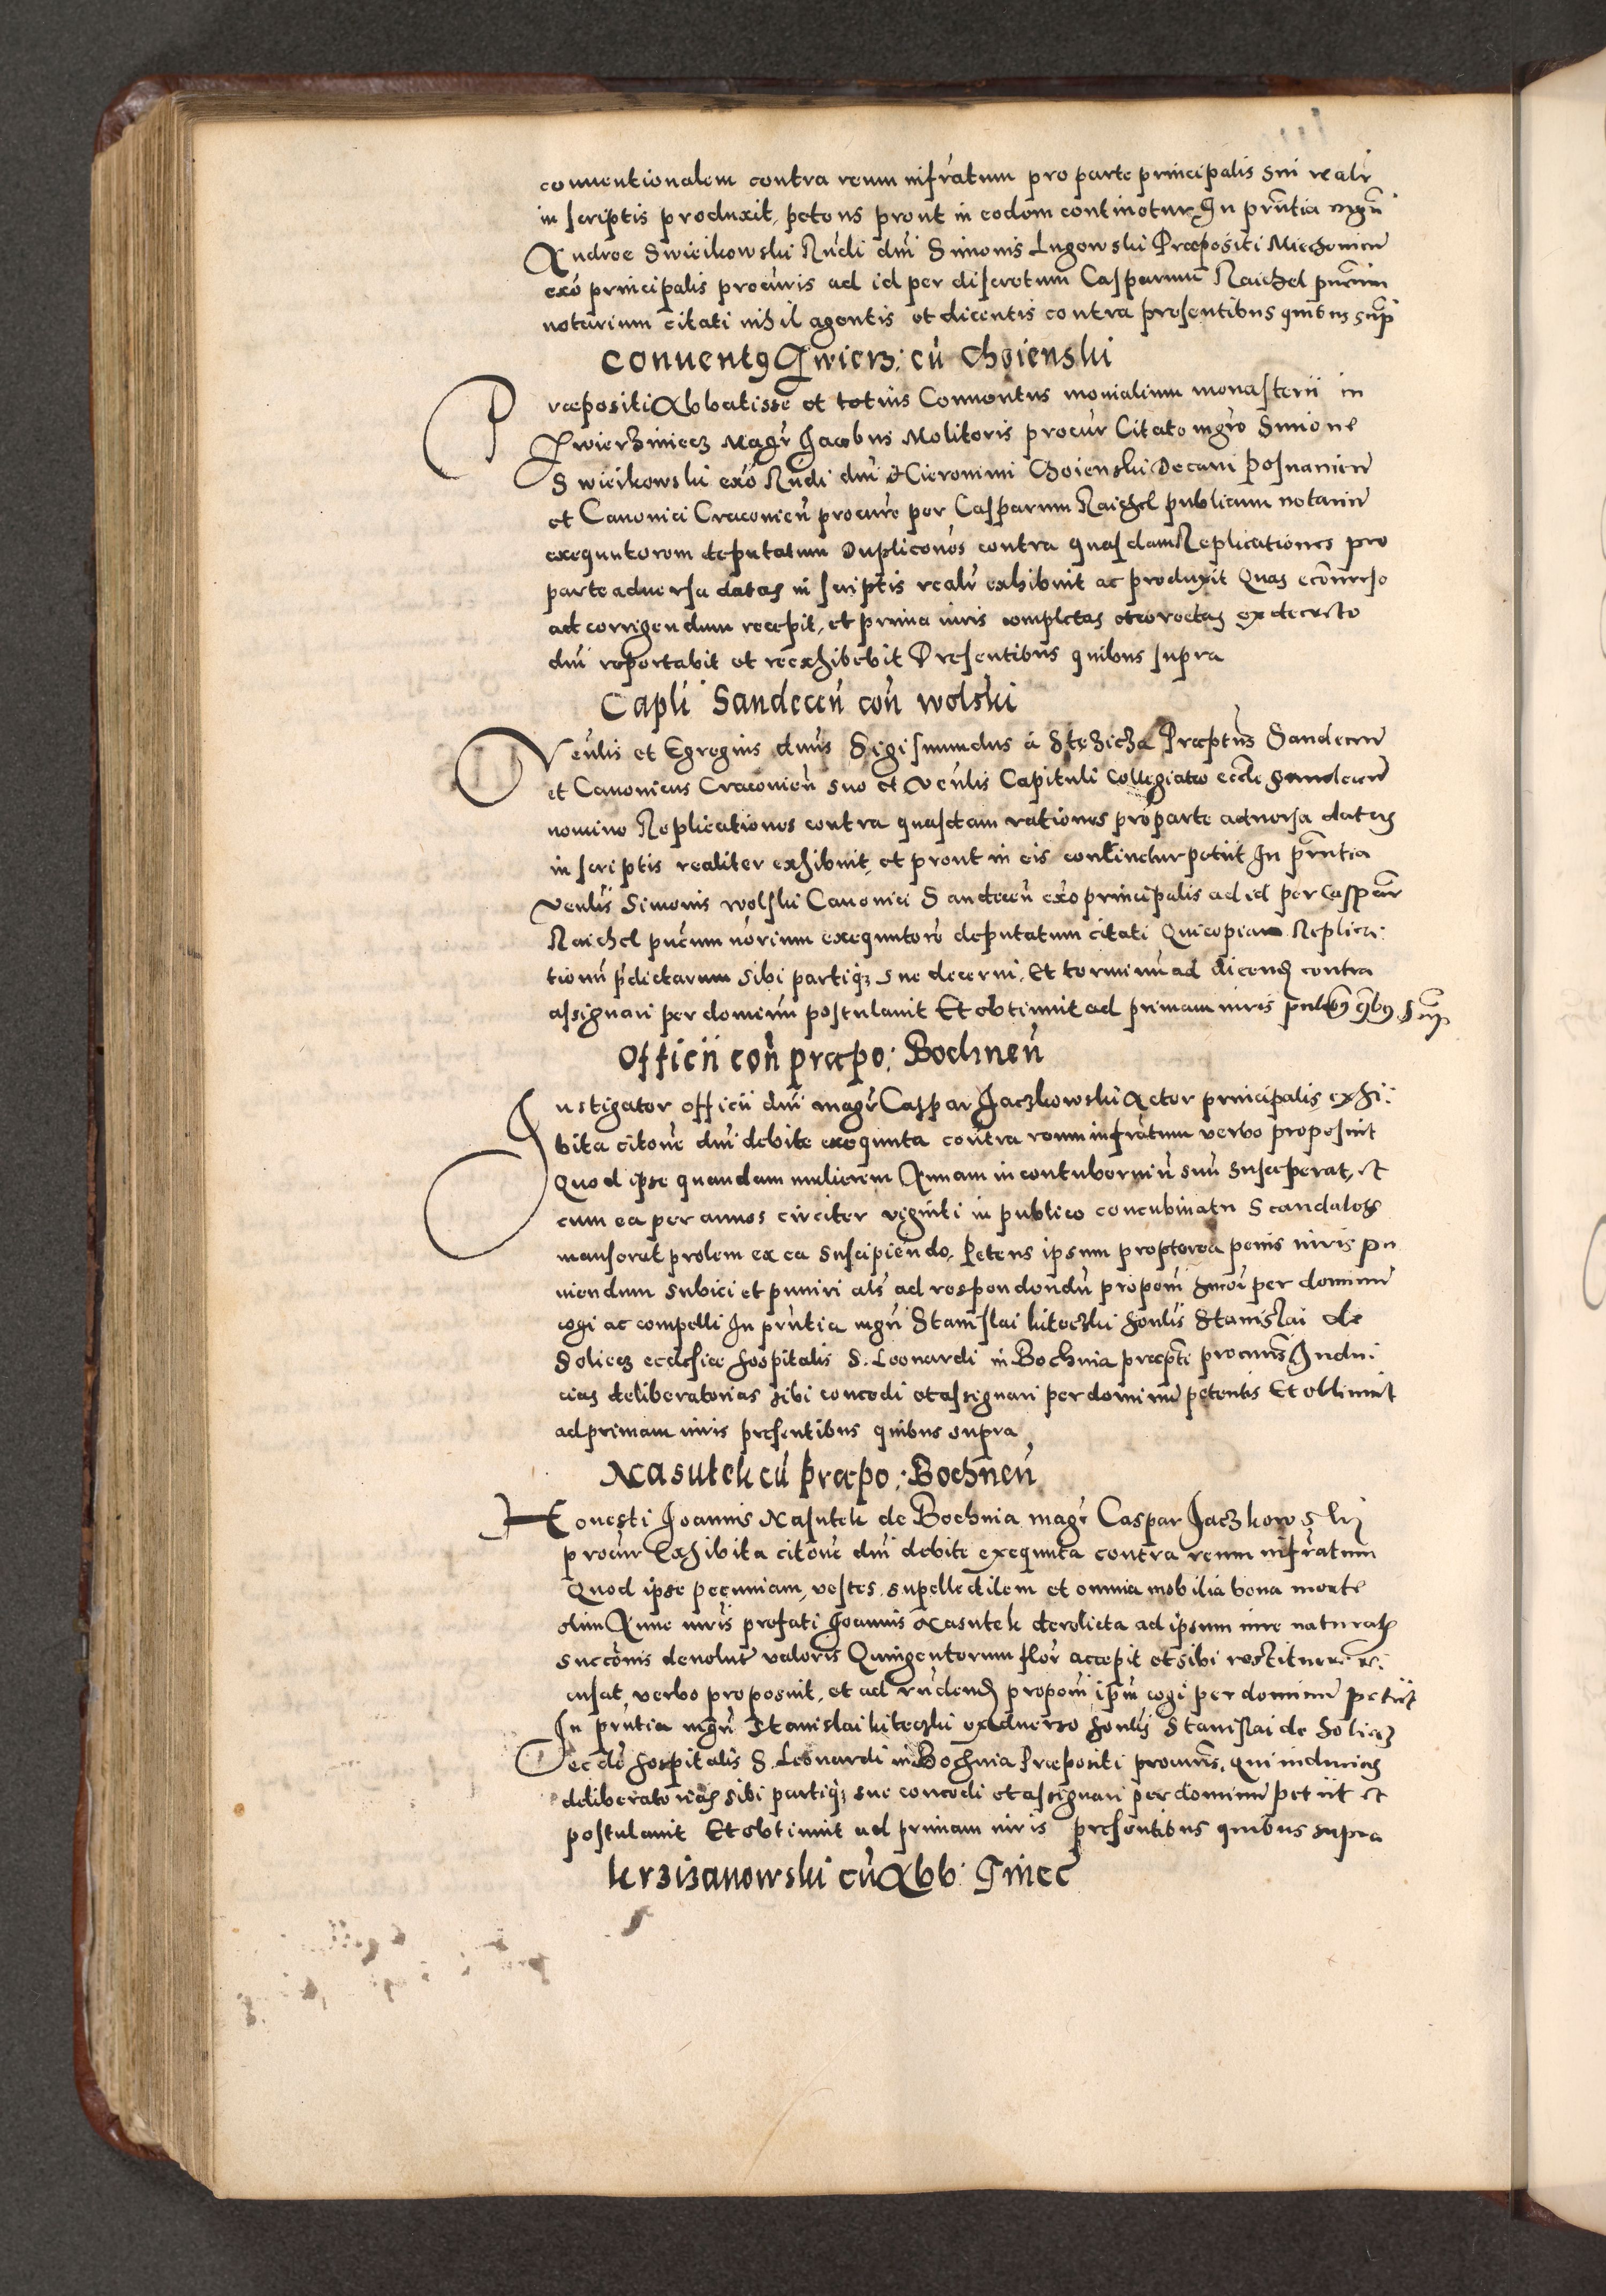 conventionalem contra reum infratum pro parte principalis sui realr
in scriptis produxit, petens prout in eodem continetur, In prntia mgri
Andree Swieikowski Rndi dni Simonis Lugowski Præpositi Miechovien
exo principalis procuris ad id per discretum Casparum Raichel pucum
notarium citati nihil agentis et dicentis contra presentibus quibus sup
Conventus Zwierz: cu Choienski
Præpositi Abbatisse et totius Conventus monialium monasterii in
Zwierziniecz Magr Jacobus Molitoris procur Citato mgro Simone
Swieikowski exo Rndi dni Hieronimi Choienski Decani posnanien
et Canonici Cracovien procure per Casparum Raichel publicum notariu
exequutorem deputatum Dupliconos contra quasdam Replicationes pro
parte adversa datas in scriptis realr exhibuit ac produxit Quas econverso
ad corrigendum recepit, et prima iuris completas correctas ex decreto
dni reportabit et reexhibebit Presentibus quibus supra
Capli Sandecen con Wolski
Venlis et Egregius dnus Sigismundus à Stezicza Præptus Sandecen
et Canonicus Cracovien suo et Venlis Capituli Collegiatæ eccle Sandecen
nomine Replicationes contra quasdam rationes pro parte adversa datas
in scriptis realiter exhibuit, et prout in eis continetur petiit In prntia
Venlis Simonis Wolski Canonici Sandecen exo principalis ad id per Caspar
Raichel pucum norium exequutore deputatum citati Qui copiam Replica:
tionu pdictarum sibi partiq; sue decerni, Et terminu ad dicend contra
assignari per dominu postulavit Et obtinuit ad primam iuris pntibus qbus sup
Officii con præpo: Bochnen
Instigator officii dni magr Caspar Jaczkowski Actor principalis exhi:
bita citone dni debite exequuta contra reum infratum verbo proposuit
Quod ipse quandam mulierem Annam in contuberniu suu susceperat, et
cum ea per annos circiter viginti in publico concubinatu scandalose
manserat prolem ex ea suscipiendo, Petens ipsum propterea penis iuris pu
niendum subici et puniri als ad respondendu proponi hmoi per dominu
cogi ac compelli In prntia mgri Stanislai kiteczki honlis Stanislai de
Soliecz ecclesiæ hospitalis S. Leonardi in Bochnia præpti procuris Indu:
cias deliberatorias sibi concedi et assignari per dominu petentis Et obtinuit
ad primam iuris presentibus quibus supra
Nasutek cu præpo: Bochnen
Honesti Joannis Nasutek de Bochnia magr Caspar Jaczkowski
procur Exhibita citone dni debite exequuta contra reum infratum
Quod ipse pecuniam, vestes, supellectilem et omnia mobilia bona morte
olim Anne uxoris prefati Joannis Nasutek derelicta ad ipsum iure naturalis
succonis devoluta valoris Quingentorum flor accepit et sibi restituere re:
cusat, verbo proposuit, et ad rndend proponi ipm cogi per dominu petiit
In prntia mgri Stanislai kiteczki ex adverso honlis Stanislai de Soliecz
eccle hospitalis S. Leonardi in Bochnia Præpositi procuris, qui inducias
deliberatorias sibi partiq; sue concedi et assignari per dominu petiit et
postulavit Et obtinuit ad primam iuris presentibus quibus supra
krzizanowski cu Abb: